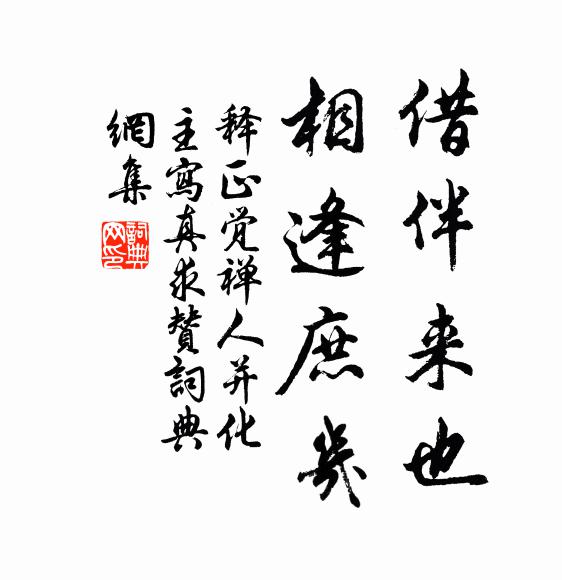 借伴来也
相逢庶几
释正觉禅人并化
主寫真求贊詞典
網集
詞典
网印